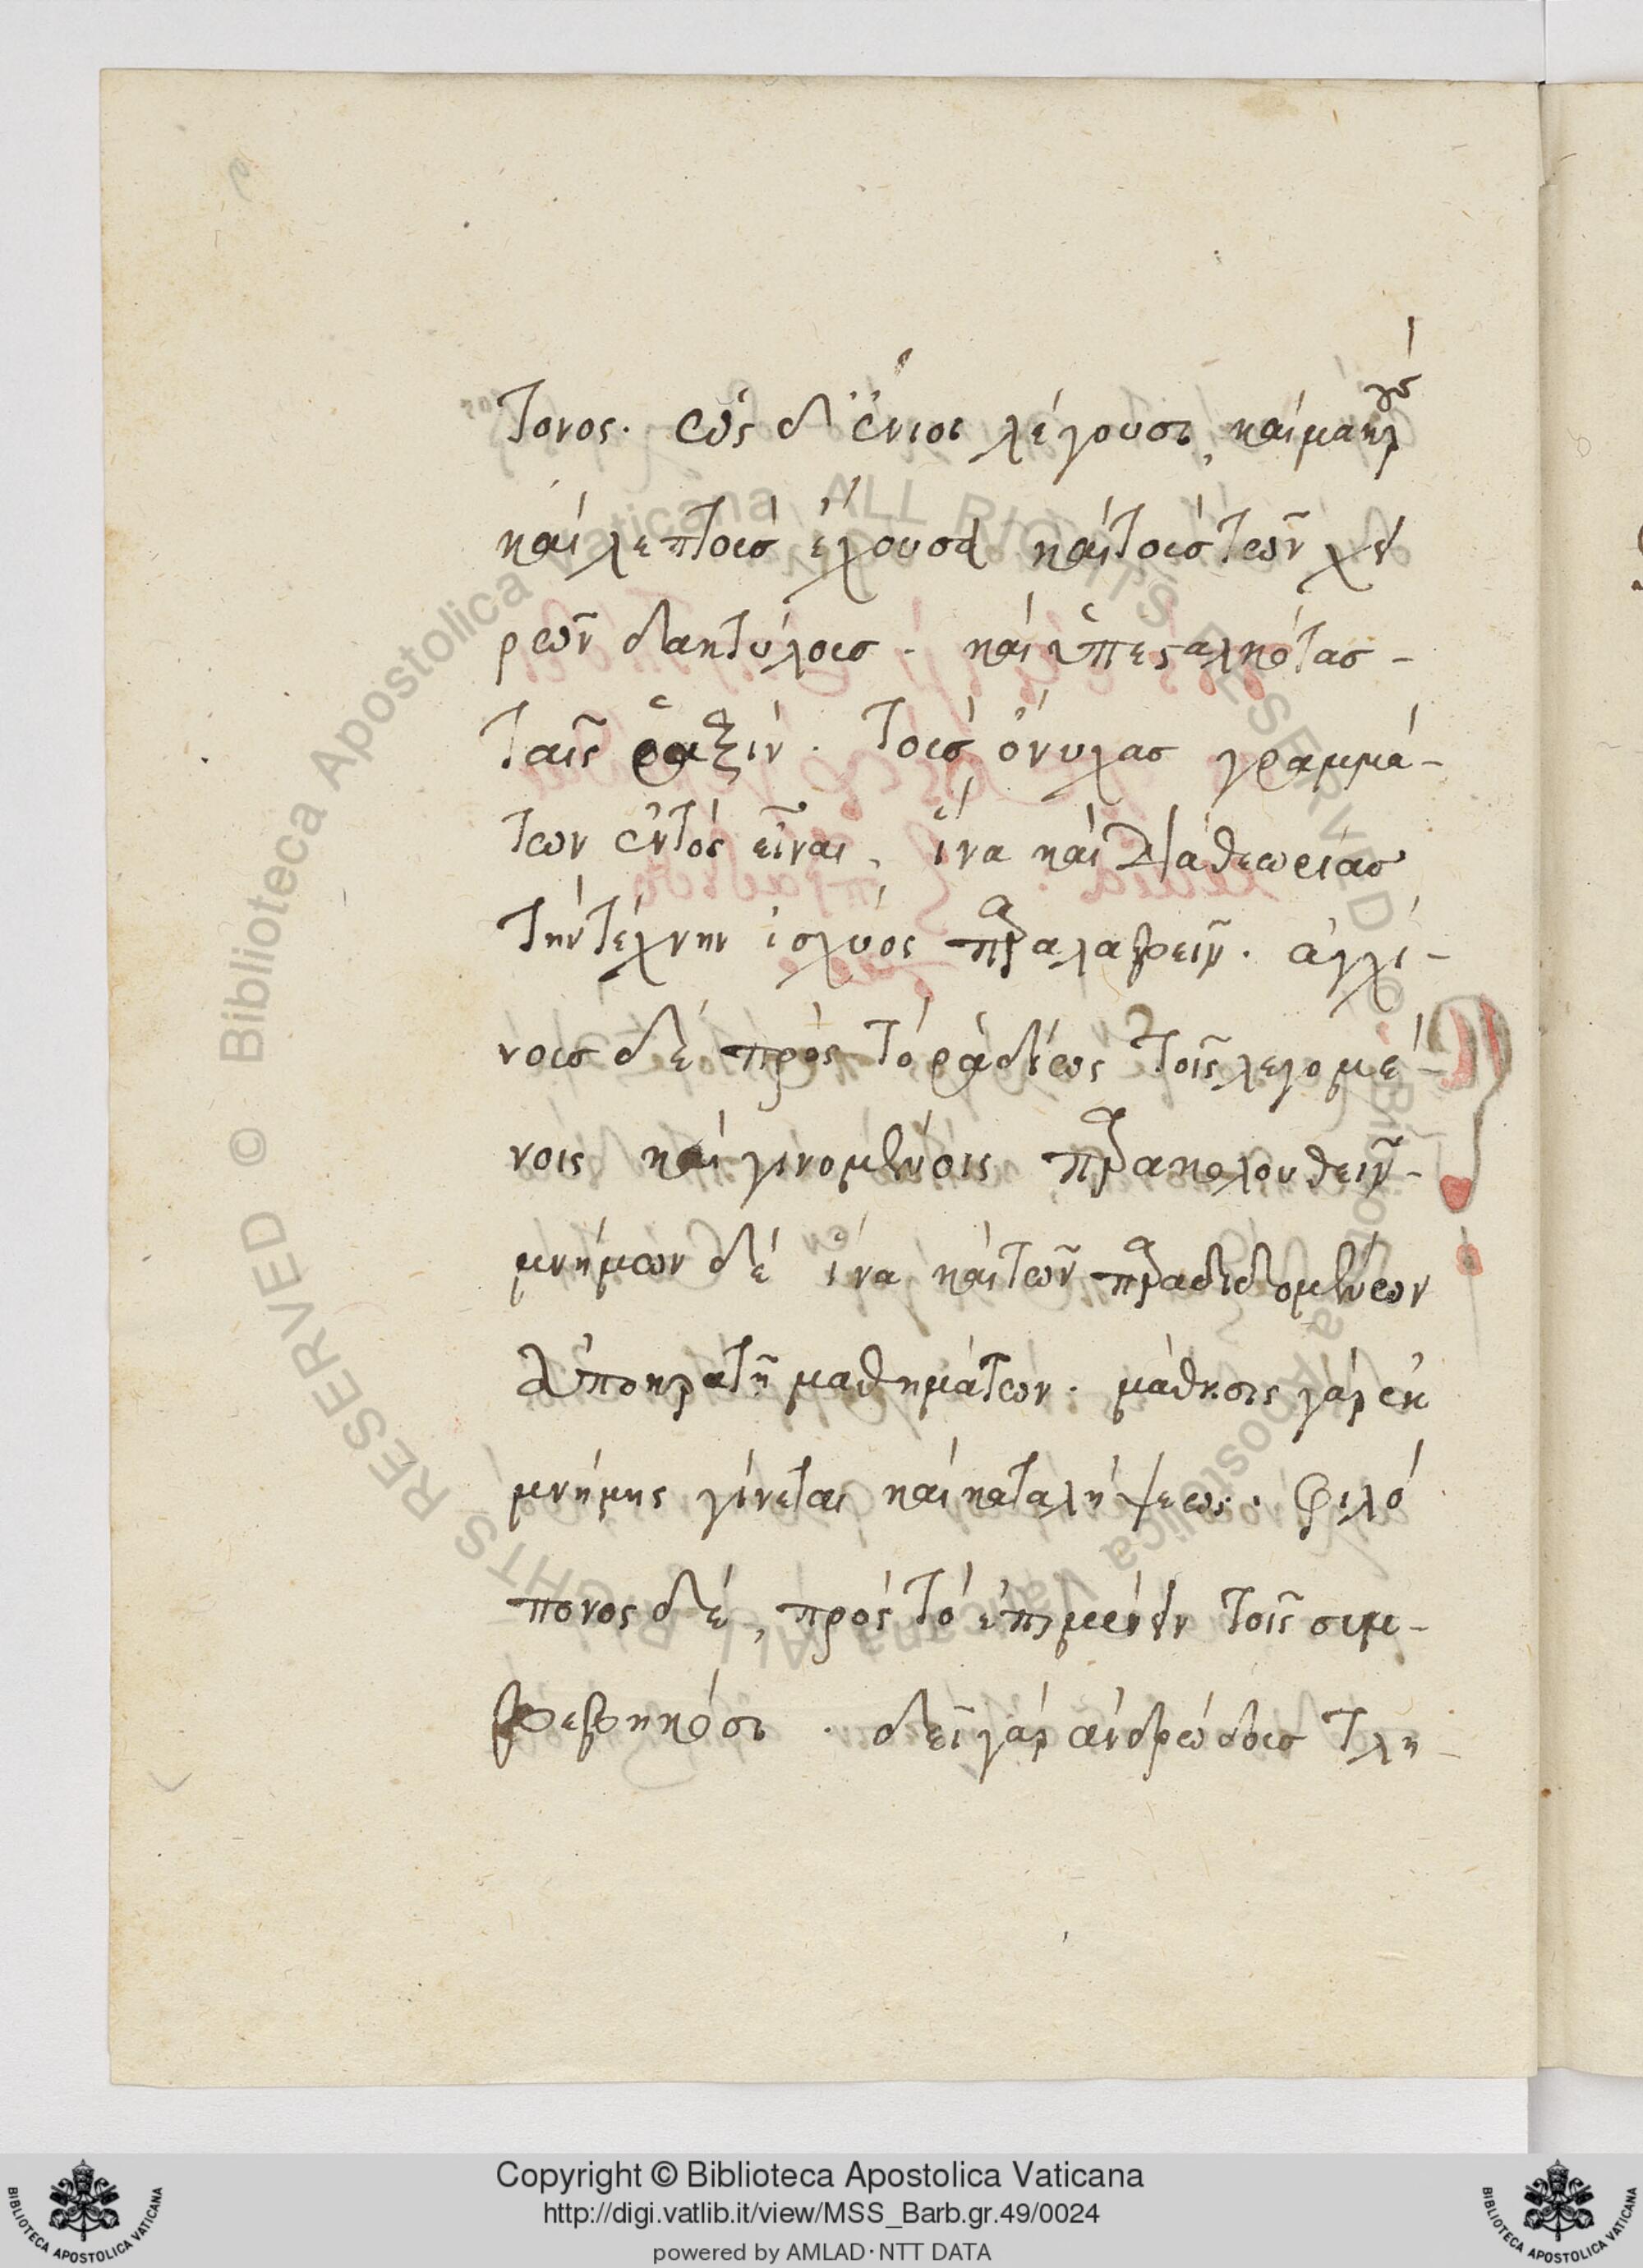 τονος. ὡς δ' ἔνιοι λέγουσι, καὶ μακροὺς
καὶ λεπτοὺς ἔχουσα καὶ τοὺς τῶν χει
ρῶν δακτύλους. καὶ ὑπεσταλκότας -
ταῖς ῥαξὶν. τοὺς ὄνυχας γραμμά-
των ἐντὸς εἶναι, ἵνα καὶ διὰ θεωρίας
τὴν τέχνην ἰσχύος παραλαβεῖν. ἀγχί-
νους δὲ πρὸς τὸ ῥαδίως τοῖς λεγομέ-
νοις καὶ γινομένοις παρακολουθεῖν -
μνήμων δὲ ἵνα καὶ τῶν παραδιδομένων
ἀποκρατῆ μαθημάτων. μάθησις γὰρ ἐκ
μνήμης γίνεται καὶ καταλήψεως. φιλό
πονος δὲ, πρὸς τὸ ἐπιμένειν τοῖς συμ-
βεβηκόσι. δεῖ γὰρ ἀνδρώδους τλη-
Copyright © Biblioteca Apostolica Vaticana
http://digi.vatlib.it/view/MSS_Barb.gr.49/0024
powered by AMLAD·NTT DATA
BIBLIOTECA APOSTOLICA VATICANA
BIBLIOTECA APOSTOLICA VATICANA
© Biblioteca Apostolica Vaticana ALL RIGHTS RESERVED © Biblioteca Apostolica Vaticana ALL RIGHTS RESERVED